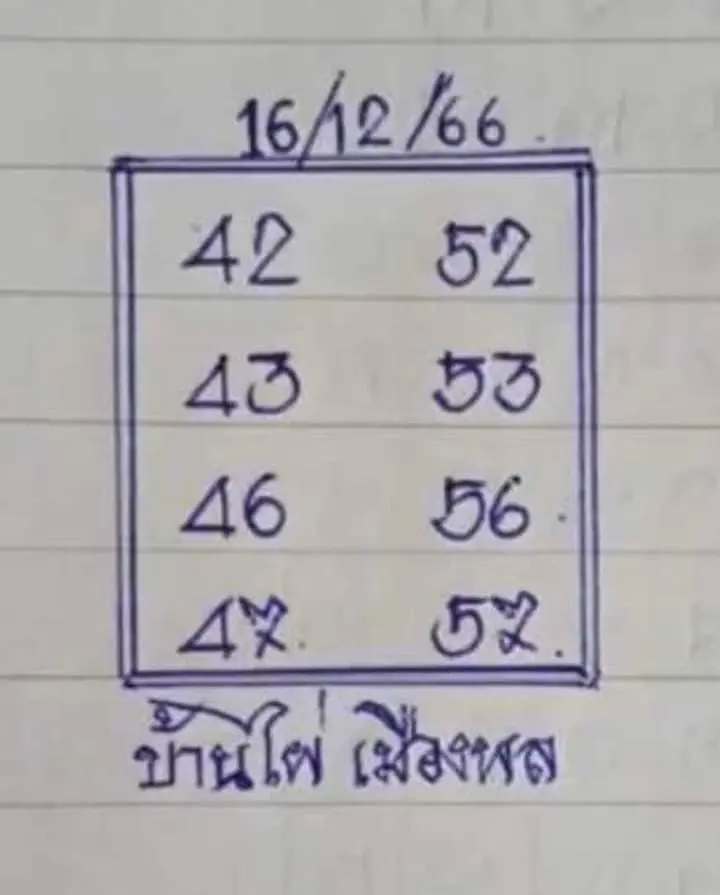 16/12/66
42 52
43 53
46 56
47 57
บ้านไผ่ เมืองพล